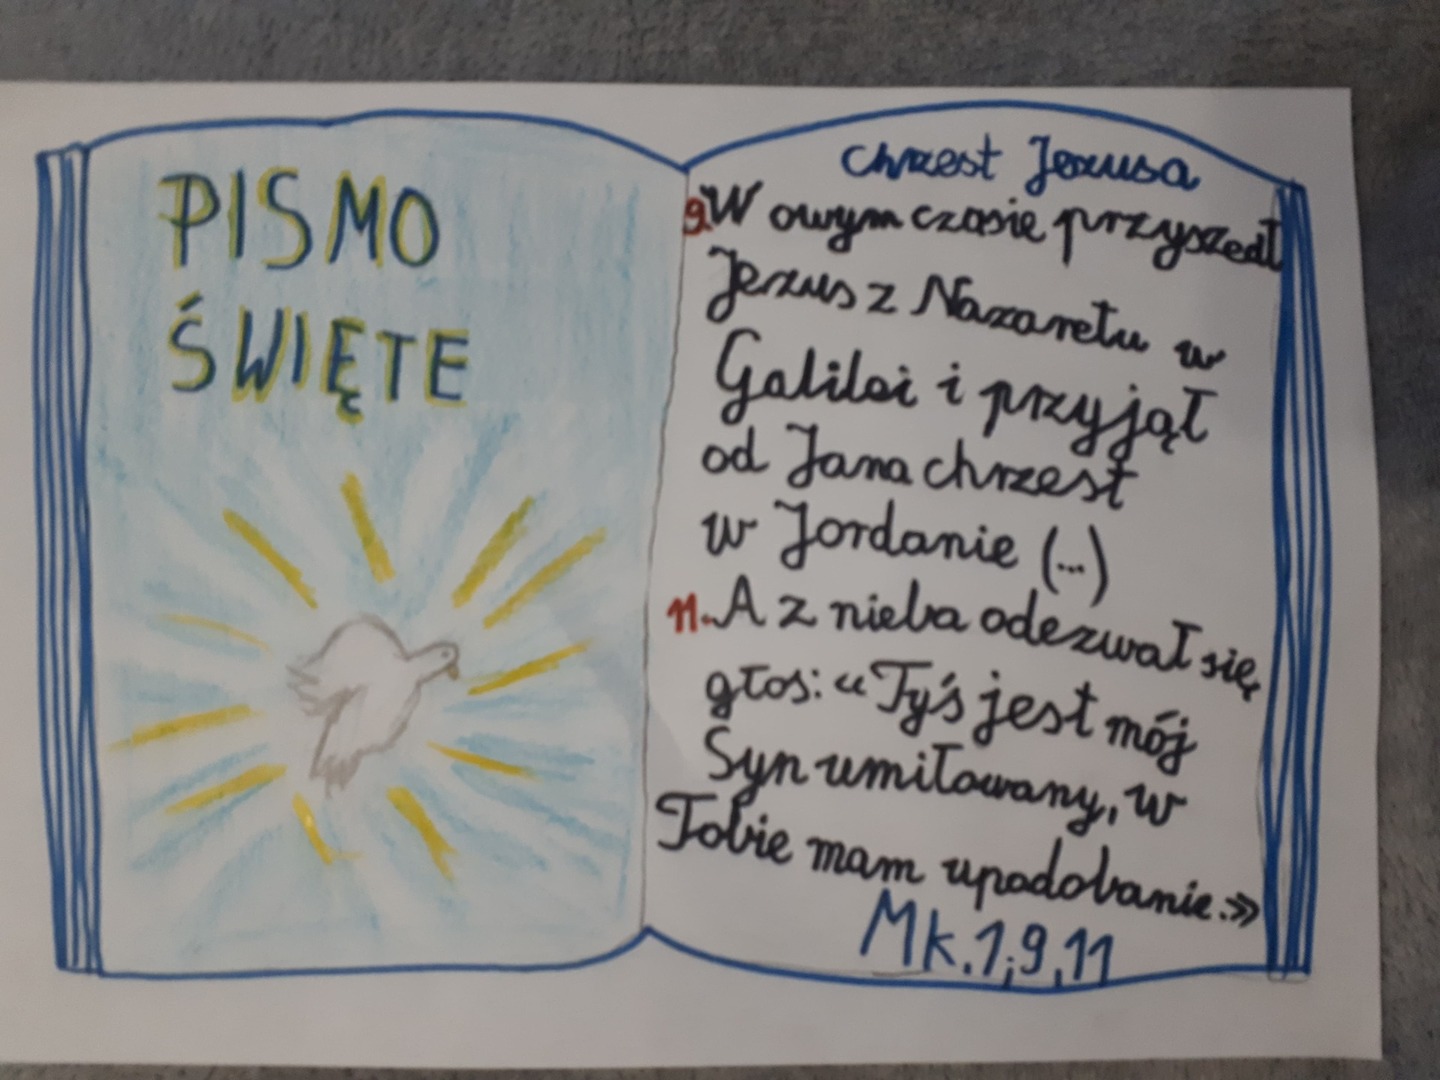 PISMO
ŚWIĘTE
chrzest Jezusa
9W owym czasie przyszedł
Jezus z Nazaretu w
Galilei i przyjął
od Jana chrzest
w Jordanie (...)
11. A z nieba odezwał się
głos: «Tyś jest mój
Syn umiłowany, w
Tobie mam upodobanie.»
Mk.1,9,11